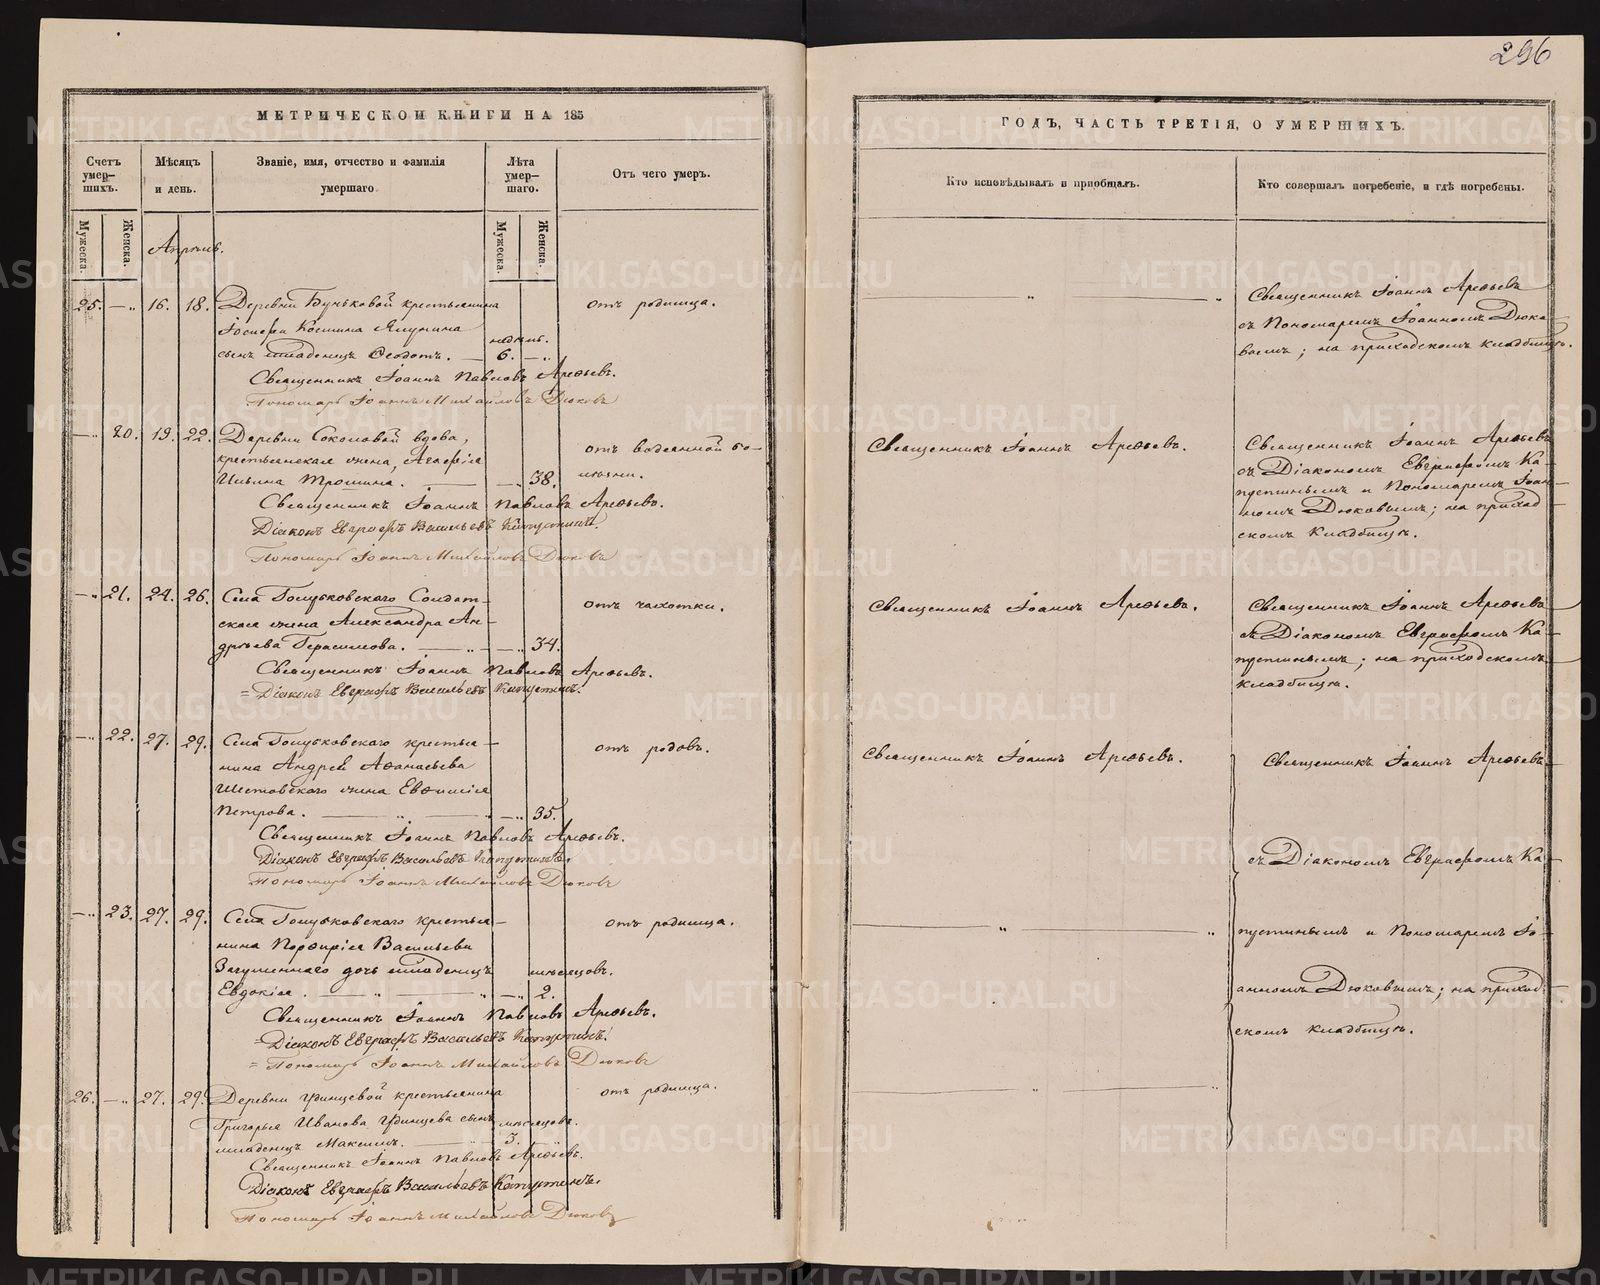 296
МЕТРИЧЕСКОЙ КНИГИ НА 185
ГОДЪ, ЧАСТЬ ТРЕТІЯ, О УМЕРШИХЪ.
Счетъ умер-шихъ.
Мѣсяцъ и день.
Званіе, имя, отчество и фамилія умершаго
Лѣта умер-шаго.
Отъ чего умеръ.
Кто исповѣдывалъ и пріобщалъ.
Кто совершалъ погребеніе, и гдѣ погребены.
Мужеска.
Женска.
Мужеска.
Женска.
Апрѣль.
25. — „ 16. 18. Деревни Буньковой крестьянина
Іосифа Космина Ялунина
сынъ младенецъ Ѳеодотъ. —
недѣль.
6. — „
отъ родимца.
„ „
Священникъ Іоаннъ Арефьевъ
съ Пономаремъ Іоанномъ Дюко-
вымъ; на приходскомъ кладбищѣ.
Священникъ Іоаннъ Павловъ Арефьевъ.
Пономарь Іоаннъ Михайловъ Дюковъ
— „ 20. 19. 22. Деревни Соколовой вдова,
крестьянская жена, Агафія
Ильина Трошина. — — „ 38.
отъ водяанной бо-
лѣзни.
Священникъ Іоаннъ Арефьевъ.
Священникъ Іоаннъ Арефьевъ
съ Діакономъ Евграфомъ Ка-
пустинымъ и Пономаремъ Іоан-
номъ Дюковымъ; на приход-
скомъ кладбищѣ.
Священникъ Іоаннъ Павловъ Арефьевъ.
Діаконъ Евграфъ Васильевъ Капустинъ.
Пономарь Іоаннъ Михайловъ Дюковъ
— „ 21. 24. 26. Села Голубковскаго Солдат-
ская жена Александра Ан-
дрѣева Герасимова. — „ — „ 34.
отъ чахотки.
Священникъ Іоаннъ Арефьевъ.
Священникъ Іоаннъ Арефьевъ
съ Діакономъ Евграфомъ Ка-
пустинымъ; на приходскомъ
кладбищѣ.
Священникъ Іоаннъ Павловъ Арефьевъ.
= Діаконъ Евграфъ Васильевъ Капустинъ.
— „ 22. 27. 29. Села Голубковскаго крестья-
нина Андрей Аѳанасьева
Шестовскаго жена Евфимія
Петрова. — „ — „ — „ 35.
отъ родовъ.
Священникъ Іоаннъ Арефьевъ.
Священникъ Іоаннъ Арефьевъ
Священникъ Іоаннъ Павловъ Арефьевъ.
Діаконъ Евграфъ Васильевъ Капустинъ.
Пономарь Іоаннъ Михайловъ Дюковъ
съ Діакономъ Евграфомъ Ка-
— „ 23. 27. 29. Села Голубковскаго крестья-
нина Порфирія Васильева
Загуменнаго дочь младенецъ
Евдокія. — „ — „ — „
мѣсяцовъ.
2.
отъ родимца.
„ „
пустинымъ и Пономаремъ Іо-
анномъ Дюковымъ; на приход-
скомъ кладбищѣ.
Священникъ Іоаннъ Павловъ Арефьевъ.
= Діаконъ Евграфъ Васильевъ Капустинъ.
= Пономарь Іоаннъ Михайловъ Дюковъ
26. — „ 27. 29. Деревни Удинцевой крестьянина
Григорья Иванова Удинцева сынъ
младенецъ Максимъ. —
мѣсяцовъ.
3. — „
отъ родимца.
„ „
Священникъ Іоаннъ Павловъ Арефьевъ.
Діаконъ Евграфъ Васильевъ Капустинъ.
Пономарь Іоаннъ Михайловъ Дюковъ
METRIKI.GASO-URAL.RU